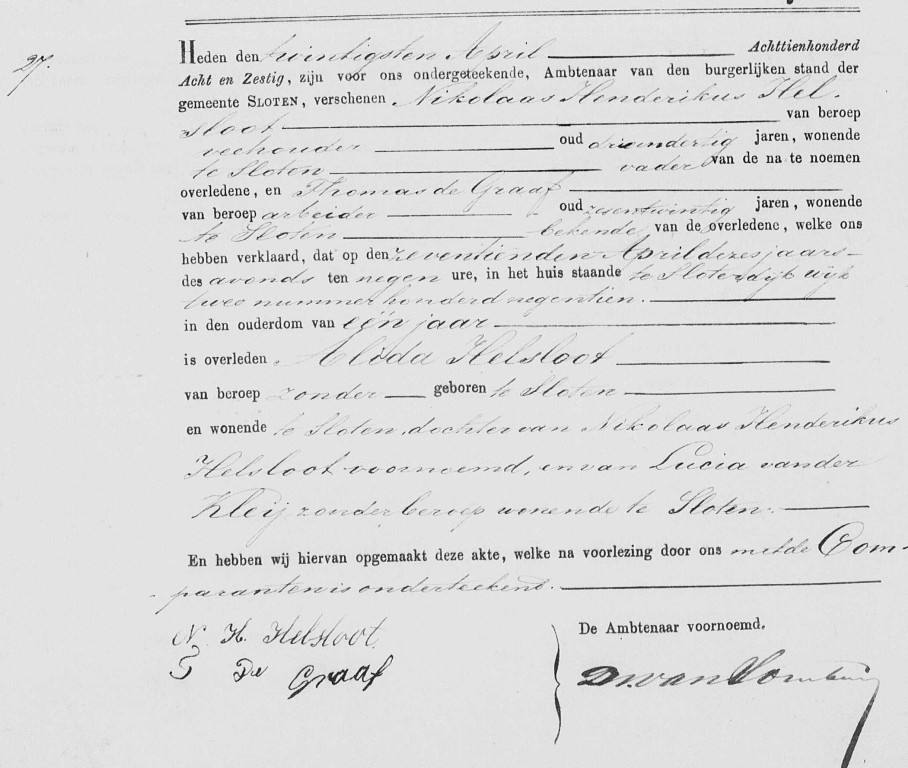 27.
Heden den twintigsten April Achttienhonderd
Acht en Zestig, zijn voor ons ondergeteekende, Ambtenaar van den burgerlijken stand der
gemeente SLOTEN, verschenen Nikolaas Henderikus Hel-
sloot van beroep
veehouder oud drieendertig jaren, wonende
te Sloten vader van de na te noemen
overledene, en Thomas de Graaf
van beroep arbeider oud zesentwintig jaren, wonende
te Sloten bekende van de overledene, welke ons
hebben verklaard, dat op den zeventienden April dezes jaars
des avonds ten negen ure, in het huis staande te Sloterdijk wijk
twee nummer honderd negentien.
in den ouderdom van één jaar
is overleden Alida Helsloot
van beroep zonder geboren te Sloten
en wonende te Sloten, dochter van Nikolaas Henderikus
Helsloot voornoemd, en van Lucia van der
Kleij zonder beroep wonende te Sloten.
En hebben wij hiervan opgemaakt deze akte, welke na voorlezing door ons met de Com-
paranten is onderteekend.
N. H. Helsloot
T De Graaf
De Ambtenaar voornoemd.